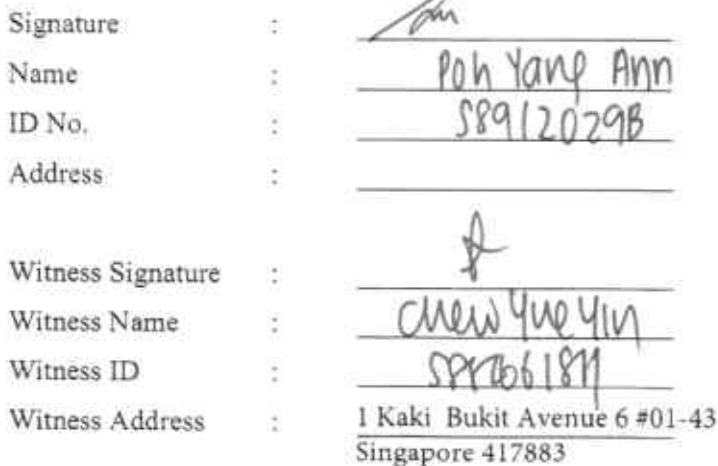 Signature :
Name : Poh Yang Ann
ID No. : S8912029B
Address :
Witness Signature :
Witness Name : Chew Yue Yin
Witness ID :
Witness Address : 1 Kaki Bukit Avenue 6 #01-43
Singapore 417883